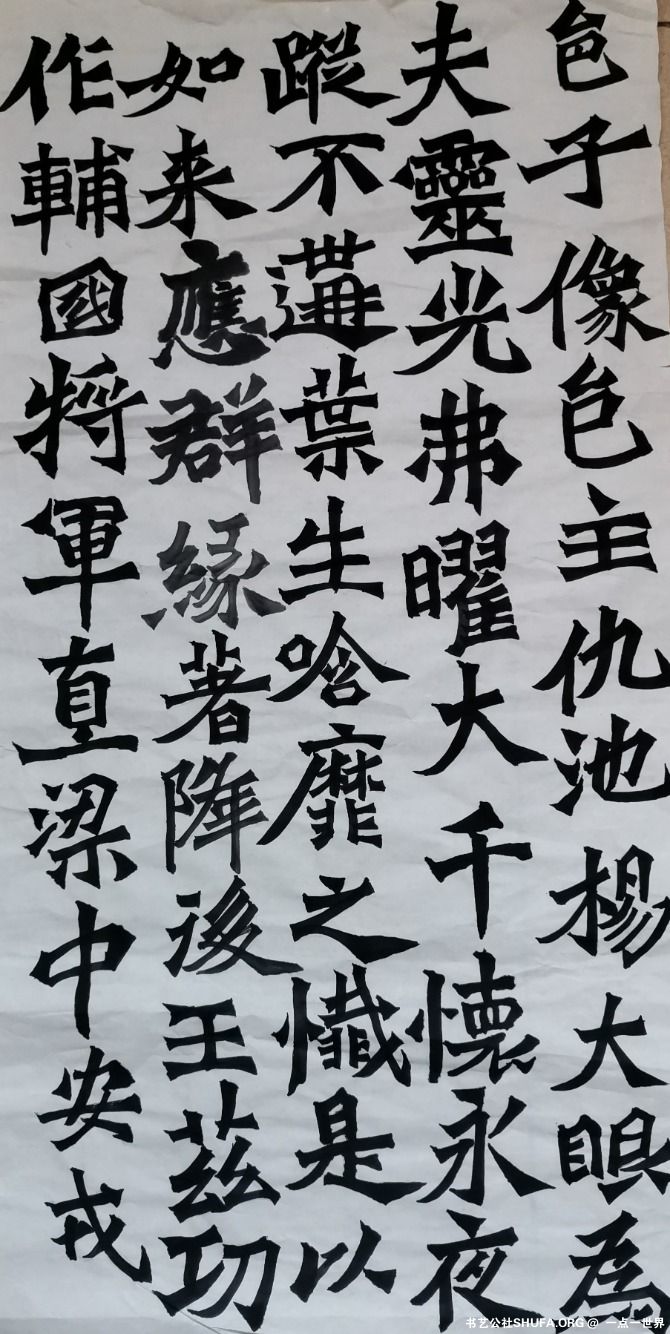 邑子像邑主仇池楊大眼為
夫靈光弗曜大千懷永夜
蹤不遘葉生唅靡之懺是以
如来應群緣著降後王茲功
作輔國將軍直梁中安戎
书艺公社SHUFA.ORG @ 一点一世界